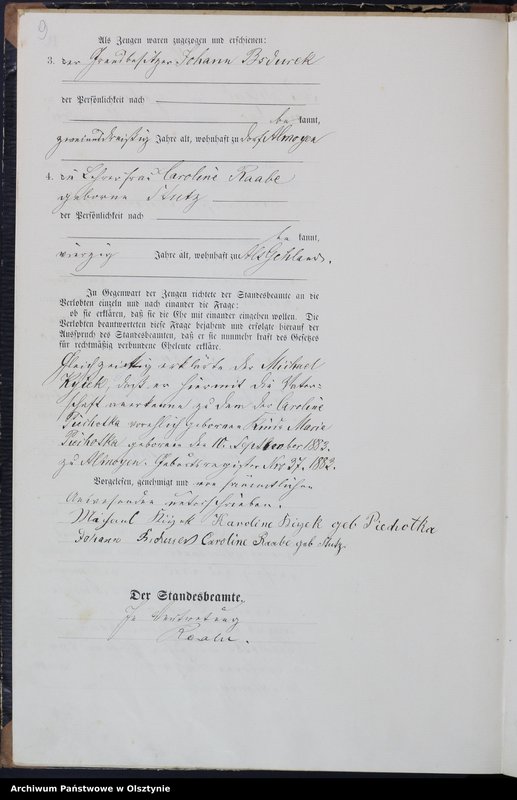 9
Als Zeugen waren zugezogen und erschienen:
3. der Grundbesitzer Johann Bsdurek
der Persönlichkeit nach
be kannt,
zweiunddreißig Jahre alt, wohnhaft zu Dorf Almoyen
4. die Lehrerfrau Caroline Raabe
geborne Stutz
der Persönlichkeit nach
be kannt,
vierzig Jahre alt, wohnhaft zu Alt Gehland.
In Gegenwart der Zeugen richtete der Standesbeamte an die
Verlobten einzeln und nach einander die Frage:
ob sie erklären, daß sie die Ehe mit einander eingehen wollen. Die
Verlobten beantworteten diese Frage bejahend und erfolgte hierauf der
Ausspruch des Standesbeamten, daß er sie nunmehr kraft des Gesetzes
für rechtmäßig verbundene Eheleute erkläre.
Gleichzeitig erklärte der Michael
daß er hiermit die Vater-
schaft anerkenne zu dem der Caroline
Piechotka geborenen Kinde Marie
Piechotka geboren den 10. September 1883.
zu Almoyen. Geburtsregister Nro 37. 1883.
Vorgelesen, genehmigt und von sämmtlichen
Anwesenden unterschrieben.
Karoline geb Piechotka
Johann Caroline Raabe geb Stutz.
Der Standesbeamte.
In Vertretung
Raabe.
Archiwum Państwowe w Olsztynie